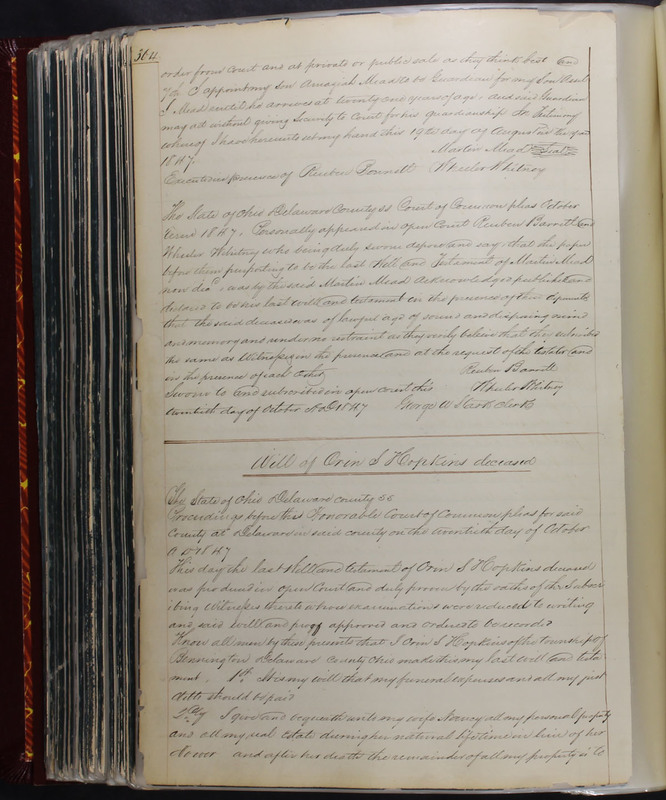 364
order from Court and at private or public sale as they think best and
7th I appoint my son Amaziah Mead to be Guardian for my son Reul
I Mead until he arrives at twenty one years of age, and said Guardian
may act without giving Security to Court for his guardianship In Testimony
whereof I have hereunto set my hand this 19th day of August in the year
1847. Martin Mead Seal
Executed in presence of Reuben Barrett Wheeler Whitney
The State of Ohio Delaware County ss Court of Common pleas October
term 1847. Personally appeared in open Court Reuben Barrett and
Wheeler Whitney who being duly sworn depose and say that the paper
before them purporting to be the last Will and Testament of Martin Mead
now decd, was by the said Martin Mead acknowledged published and
declared to be his last will and testament in the presence of these deponents
that the said deceased was of lawful age of sound and disposing mind
and memory and under no restraint as they verily believe that they subscribed
the same as Witnesses in the presence and at the request of the testator and
in the presence of each other Reuben Barrett
Sworn to and subscribed in open Court this Wheeler Whitney
twentieth day of October AD 1847 George W Stark Clerk
Will of Orin S Hopkins deceased
The State of Ohio Delaware County ss
Proceedings before the Honorable Court of Common pleas for said
County at Delaware in said county on the twentieth day of October
A D 1847
This day the last Will and testament of Orin S Hopkins deceased
was produced in open Court and duly proven by the oaths of the Subscr
ibing Witnesses thereto whose examinations were reduced to writing
and said will and proof approved and ordered to be recorded
Know all men by these presents that I Orin S Hopkins of the township of
Bennington Delaware County Ohio made this my last will and testa
ment. 1st It is my will that my funeral expenses and all my just
debts should be paid
2ndly I give and bequeath unto my wife Nancy all my personal property
and all my real estate during her natural life time in lieu of her
dower and after her death the remainder of all my property is to